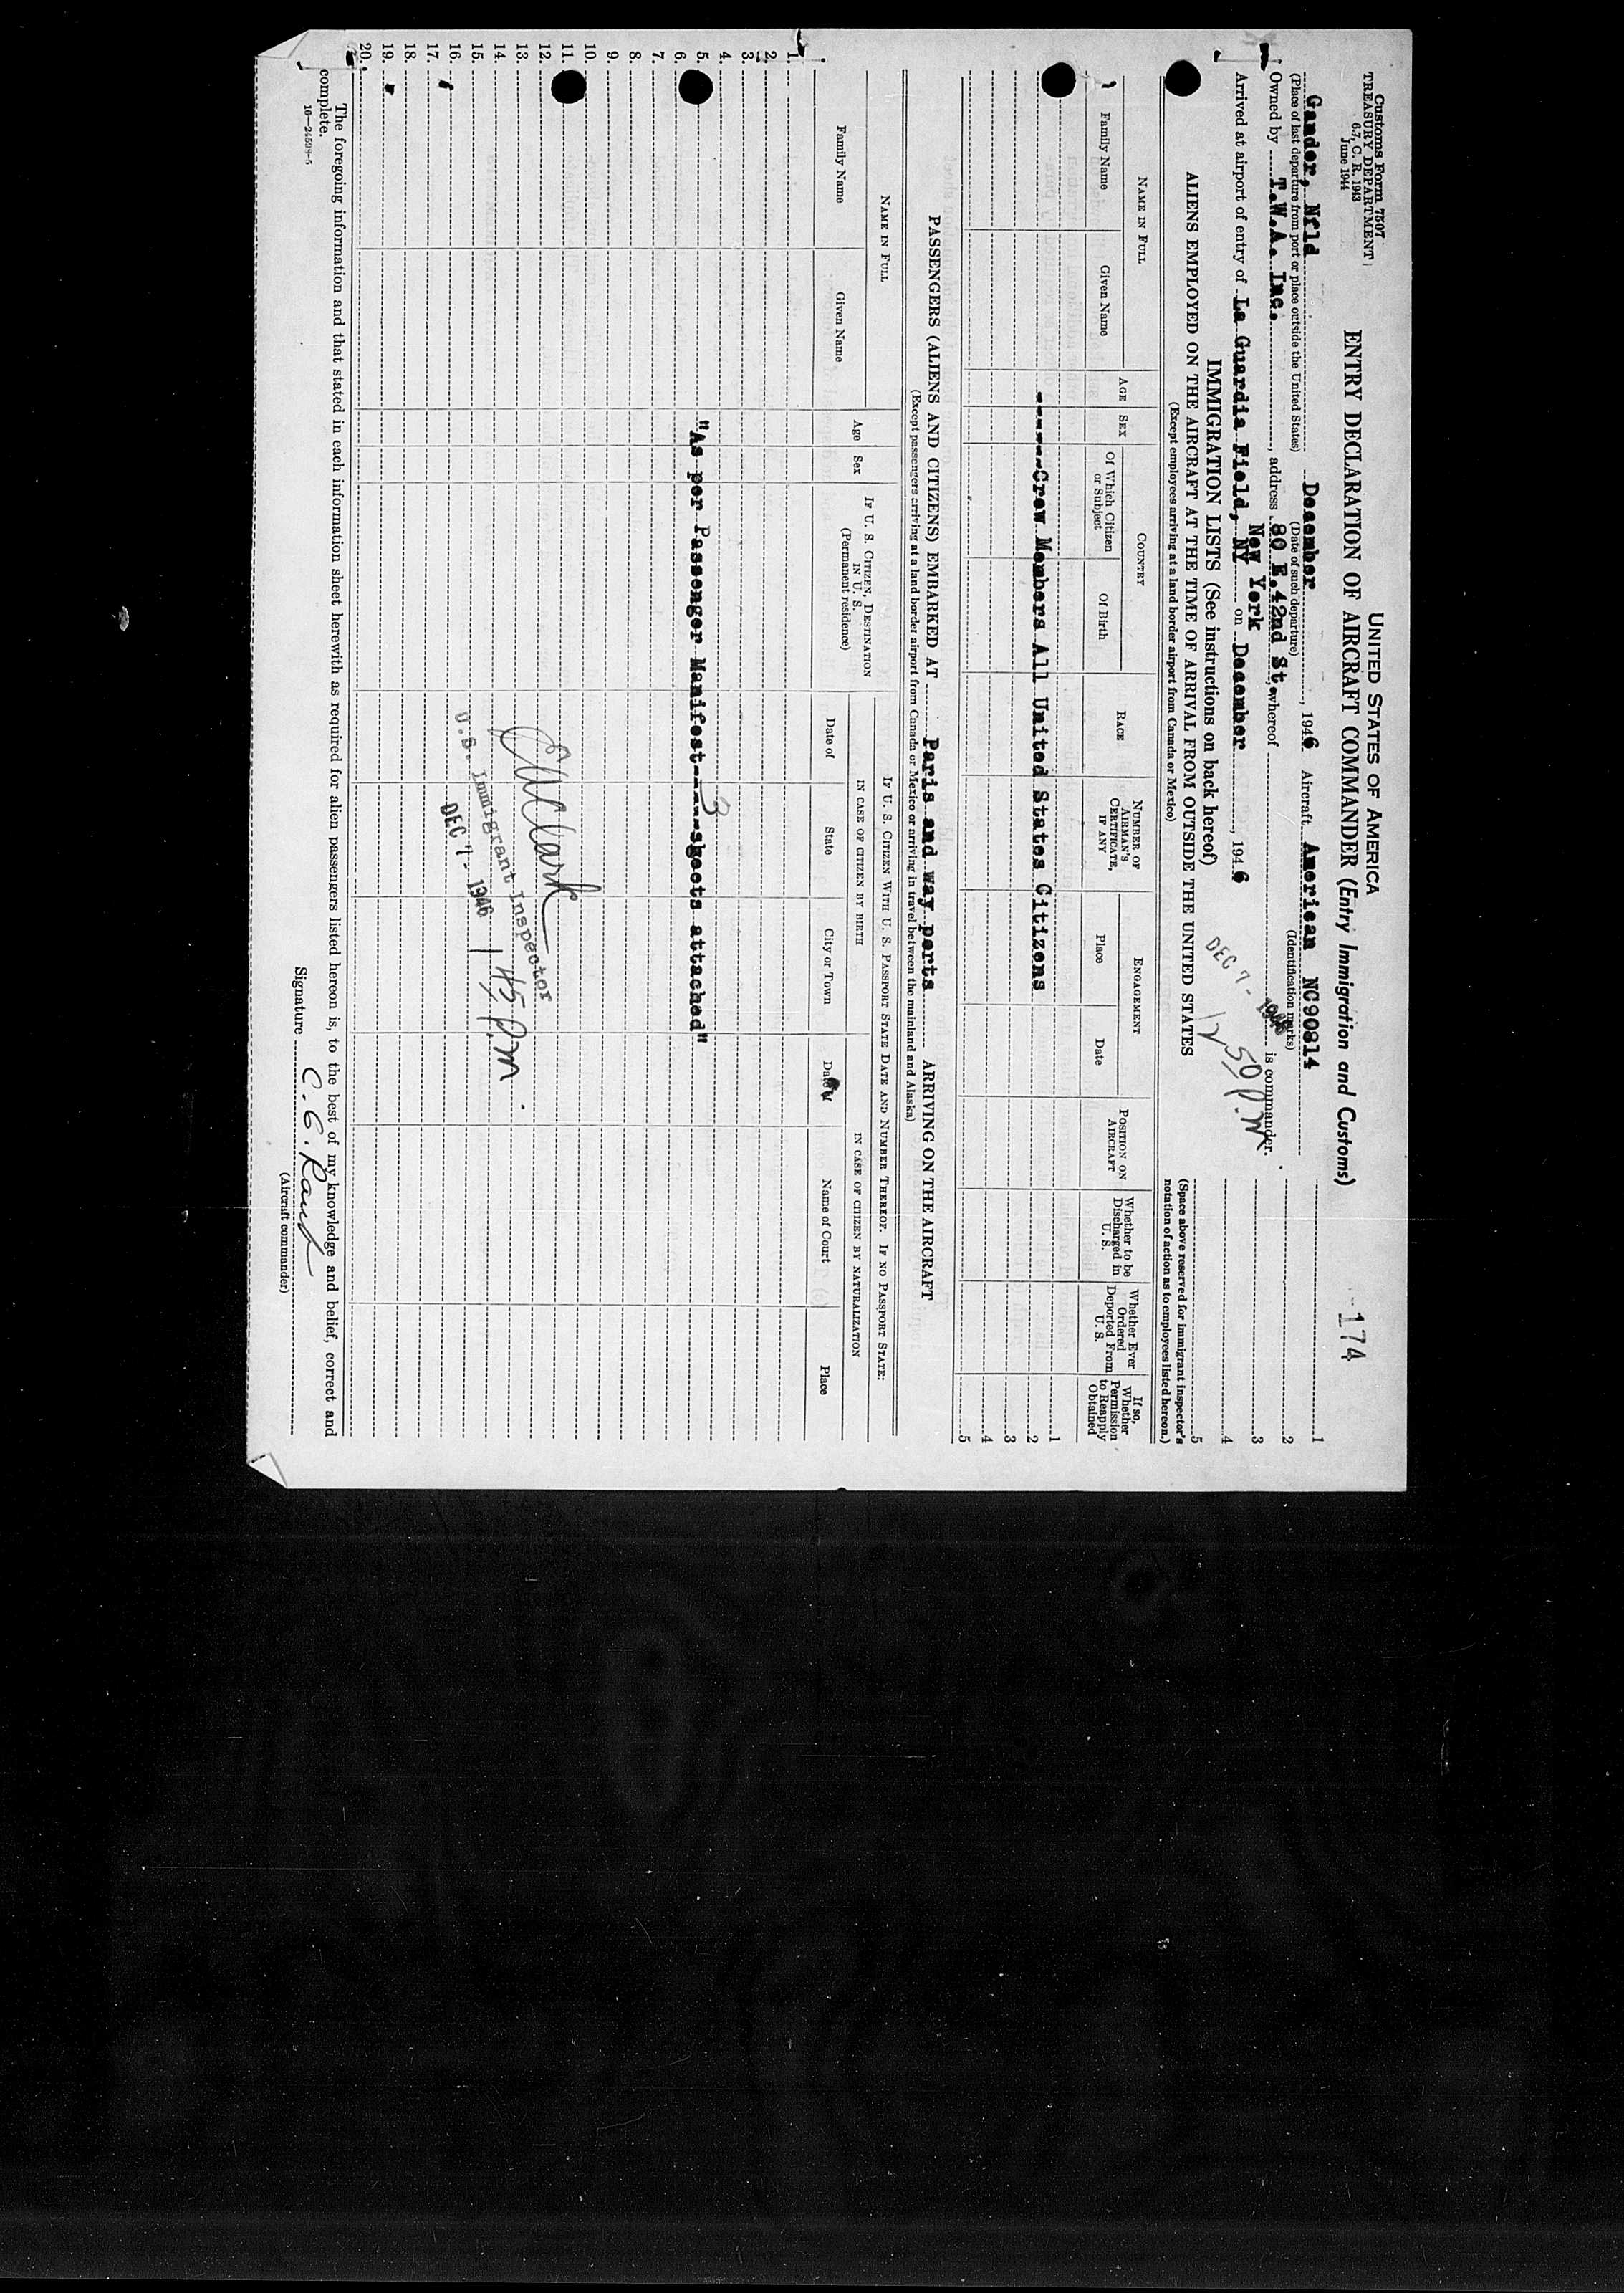 Customs Form 7507
TREASURY DEPARTMENT
6.7, C. R. 1943
June 1944
UNITED STATES OF AMERICA
ENTRY DECLARATION OF AIRCRAFT COMMANDER (Entry Immigration and Customs)
174
Gander, Nfld December, 1946 Aircraft American NC90814
(Place of last departure from port or place outside the United States) (Date of such departure) (Identification marks)
Owned by T.W.A. Inc., address 80 E.42nd St. whereof is commander.
New York
Arrived at airport of entry of La Guardia Field, NY on December, 1946
DEC 7 - 1946 12 50 P.M.
IMMIGRATION LISTS (See instructions on back hereof)
ALIENS EMPLOYED ON THE AIRCRAFT AT THE TIME OF ARRIVAL FROM OUTSIDE THE UNITED STATES
(Except employees arriving at a land border airport from Canada or Mexico)
1
2
3
4
5
(Space above reserved for immigrant inspector's notation of action as to employees listed hereon.)
NAME IN FULL
Family Name
Given Name
AGE
SEX
COUNTRY
Of Which Citizen or Subject
Of Birth
RACE
NUMBER OF AIRMAN'S CERTIFICATE, IF ANY
ENGAGEMENT
Place
Date
POSITION ON AIRCRAFT
Whether to be Discharged in U. S.
Whether Ever Ordered Deported From U. S.
If so, Whether Permission to Reapply Obtained
1
------Crew Members All United States Citizens
2
3
4
5
PASSENGERS (ALIENS AND CITIZENS) EMBARKED AT Paris and way ports ARRIVING ON THE AIRCRAFT
(Except passengers arriving at a land border airport from Canada or Mexico or arriving in travel between the mainland and Alaska)
NAME IN FULL
Family Name
Given Name
Age
Sex
IF U. S. CITIZEN, DESTINATION IN U. S.
(Permanent residence)
IF U. S. CITIZEN WITH U. S. PASSPORT STATE DATE AND NUMBER THEREOF. IF NO PASSPORT STATE:
IN CASE OF CITIZEN BY BIRTH
IN CASE OF CITIZEN BY NATURALIZATION
Date of
State
City or Town
Date of
Name of Court
Place
1.
2.
3.
4.
5.
"As per Passenger Manifest----3 sheets attached"
6.
7.
8.
9.
10.
11.
12.
13.
14.
15.
16.
17.
18.
19.
20.
Clark
U.S. Immigrant Inspector
DEC 7 - 1946 1 45 P.M.
The foregoing information and that stated in each information sheet herewith as required for alien passengers listed hereon is, to the best of my knowledge and belief, correct and
complete.
16—24508-5
Signature
(Aircraft commander)